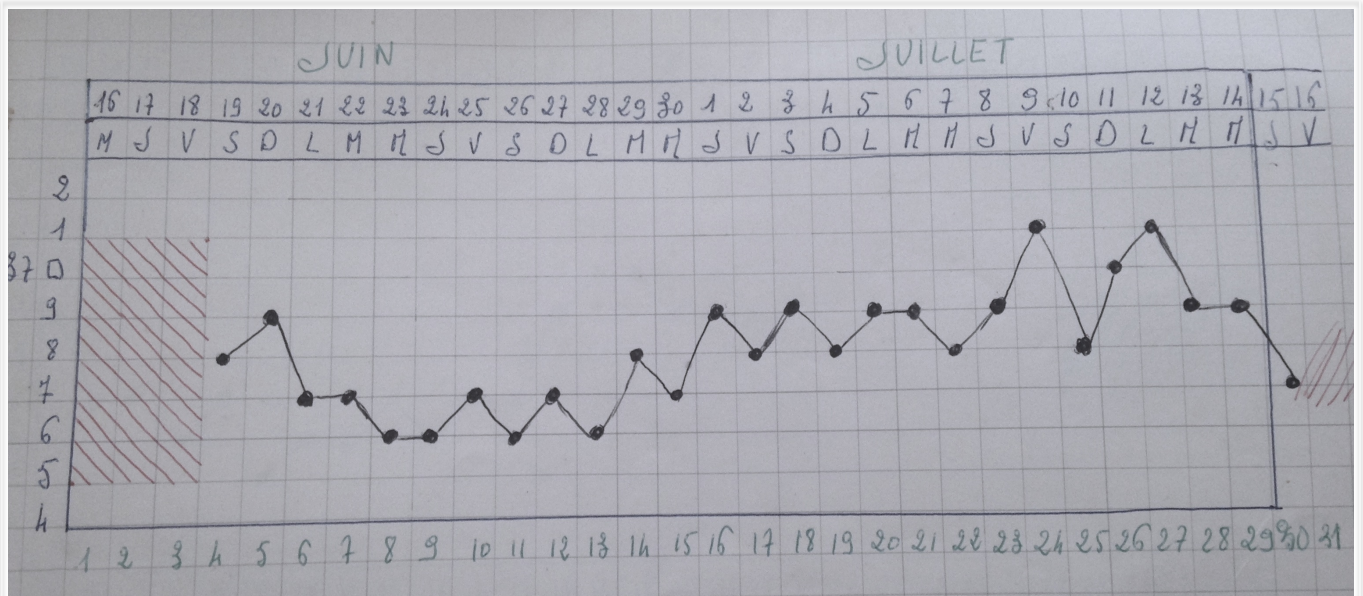 JUIN JUILLET
16 17 18 19 20 21 22 23 24 25 26 27 28 29 30 1 2 3 4 5 6 7 8 9 10 11 12 13 14 15 16
M J V S D L M M J V S D L M M J V S D L M M J V S D L M M J V
2
1
37 0
9
8
7
6
5
4
1 2 3 4 5 6 7 8 9 10 11 12 13 14 15 16 17 18 19 20 21 22 23 24 25 26 27 28 29 30 31